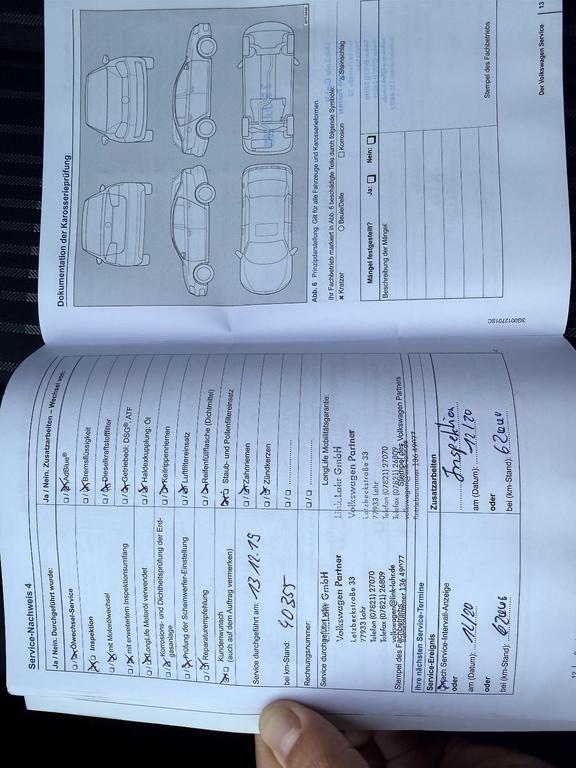 Service-Nachweis 4
Ja / Nein. Durchgeführt wurde:
Ölwechsel-Service
Inspektion
mit Motorölwechsel
mit erweitertem Inspektionsumfang
LongLife Motoröl verwendet
Korrosions- und Dichtheitsprüfung der Erd-
gasanlage
Prüfung der Scheinwerfer-Einstellung
Reparaturempfehlung
Kundenwunsch
(auch auf dem Auftrag vermerken)
Service durchgeführt am: 13 12.19
bei km-Stand: 40355
Rechnungsnummer:
Service durchgeführt
GmbH
Volkswagen Partner
Lotzbeckstraße 33
77933 Lahr
Telefon (07821) 27070
Telefax (07821) 26809
Ja / Nein. Zusatzarbeiten – Wechsel von:
AdBlue®
Bremsflüssigkeit
Dieselkraftstofffilter
Getriebeöl: DSG®, ATF
Haldexkupplung: Öl
Keilrippenriemen
Luftfiltereinsatz
Reifenfüllflasche (Dichtmittel)
Staub- und Pollenfiltereinsatz
Zahnriemen
Zündkerzen
LongLife Mobilitätsgarantie:
GmbH
Volkswagen Partner
Lotzbeckstraße 33
77933 Lahr
Telefon (07821) 27070
Telefax (07821) 26809
Stempel des Volkswagen Partners
Ihre nächsten Service-Termine
Service-Ereignis
nach Service-Intervall-Anzeige
oder
am (Datum): 12/20
oder
bei (km-Stand):
Zusatzarbeiten
Inspektion
am (Datum): 12/20
oder
bei (km-Stand): 62000
Dokumentation der Karosserieprüfung
Abb. 6 Prinzipdarstellung. Gilt für alle Fahrzeuge und Karosserieformen.
Ihr Fachbetrieb markiert in Abb. 6 beschädigte Teile durch folgende Symbole:
Kratzer
Beule/Delle
Korrosion
Steinschlag
Mängel festgestellt?
Ja:
Nein:
Beschreibung der Mängel:
Stempel des Fachbetriebs
3G0012701SC
Der Volkswagen Service
13